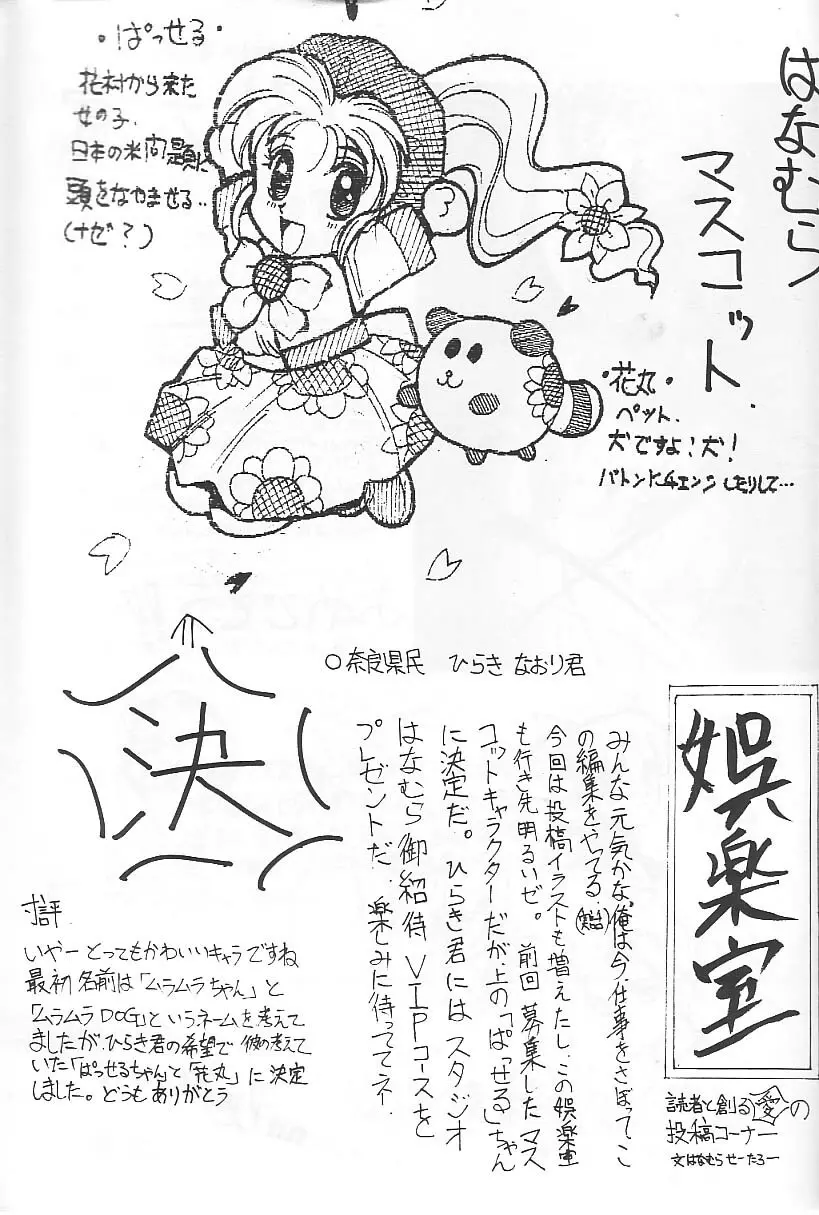 はなむら
マスコット.
・ぱっせる・
花村から来た
女の子.
日本の米問題に
頭をなやませる..
(ナゼ?)
・花丸・
ペット.
犬ですよ!犬!
バトンにチェンジしたりして…
決
○奈良県民 ひらき なおり君
娯楽室
読者と創る愛の
投稿コーナー
文はなむらせーたろー
みんな元気かな。俺は今、仕事をさぼってこ
の編集をやってる
今回は投稿イラストも増えたし、この娯楽室
も行き先明るいゼ。 前回募集したマス
コットキャラクターだが、上の「ぱっせる」ちゃん
に決定だ。ひらき君にはスタジオ
はなむら御紹待VIPコースを
プレゼントだ。楽しみに待っててネ.
いやーとってもかわいいキャラですね
最初名前は「ムラムラちゃん」と
「ムラムラDOG」というネームを考えて
ましたが、ひらき君の希望で彼の考えて
いた「ぱっせるちゃん」と「花丸」に決定
しました。どうもありがとう